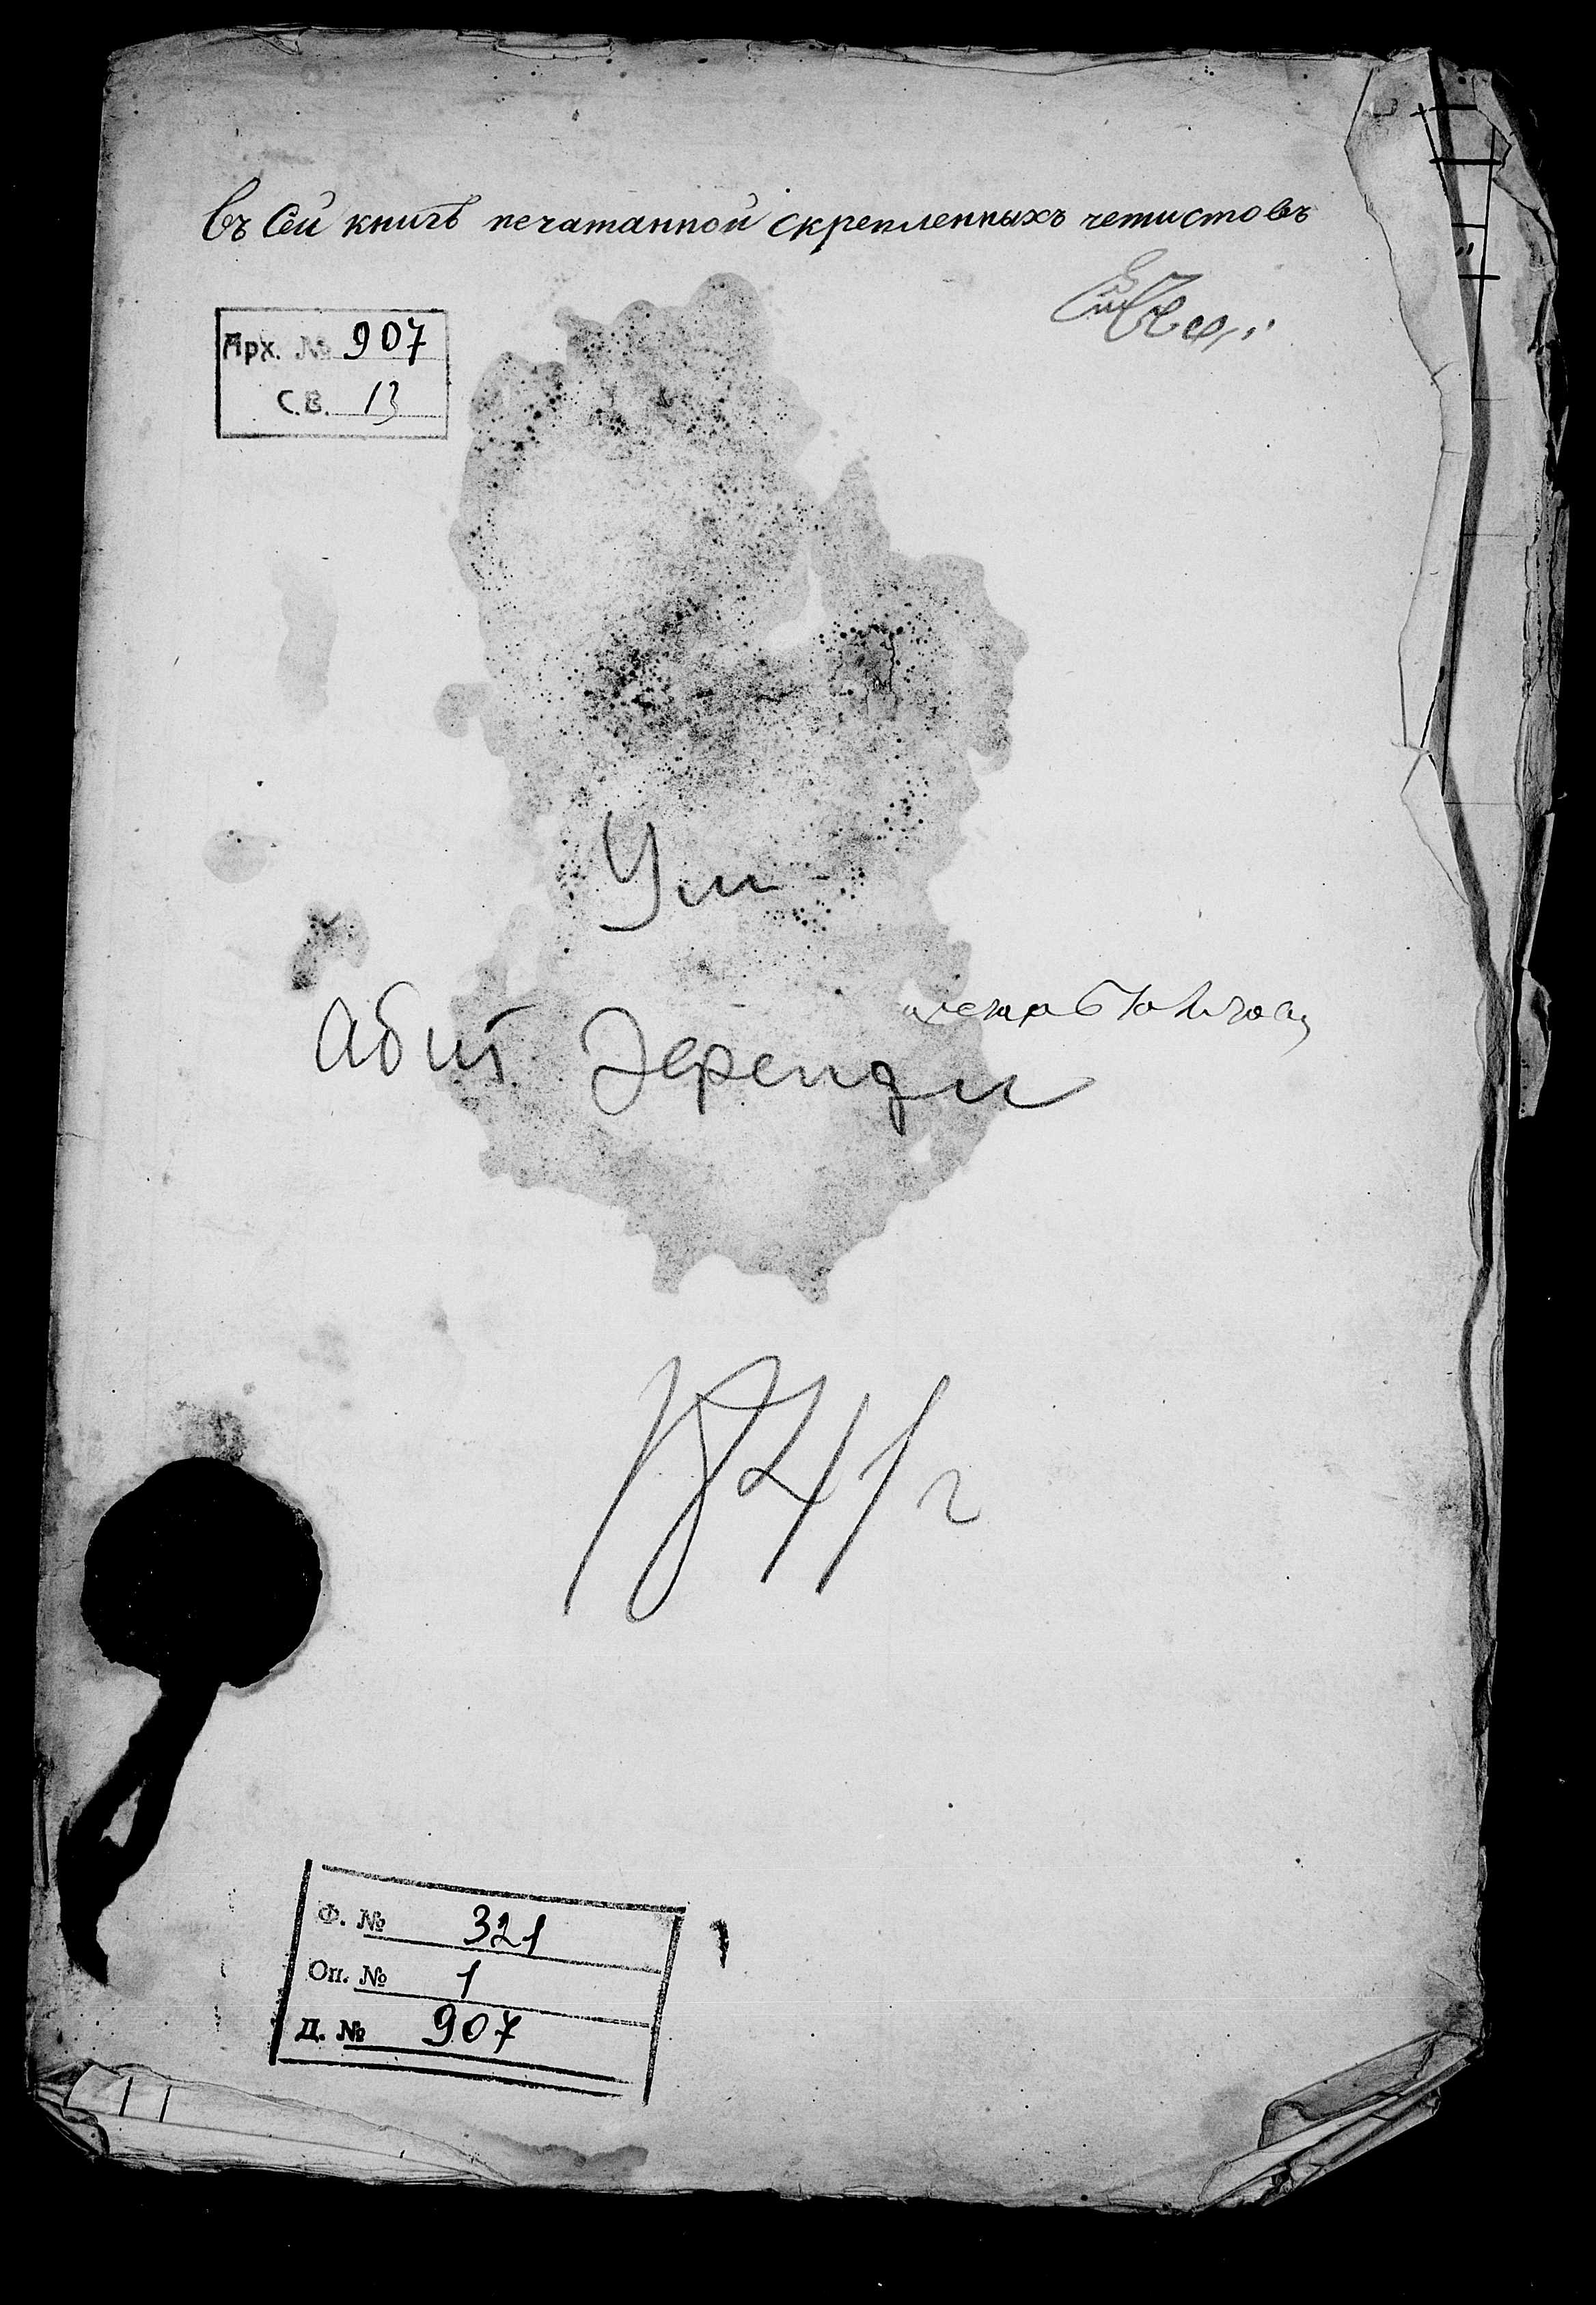 Въ Сей книгѣ печатанной скрепленныхъ четистовъ
Арх. № 907
С.В. 13
Абит Эфенди
1841 г
Ф. № 321
Оп. № 1
Д. № 907